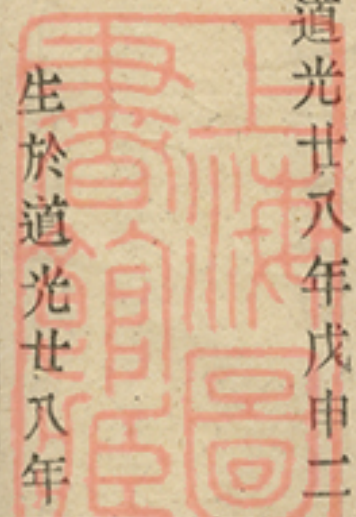 道光廿八年戊申二
生於道光廿八年
上海圖
書館藏